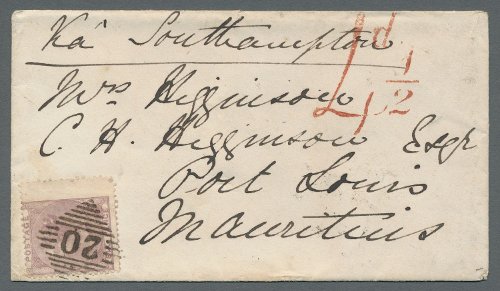 Via Southampton
1d 1/2
Mrs Higginson
C. H. Higginson Esqr
Port Louis
Mauritius
20
POSTAGE